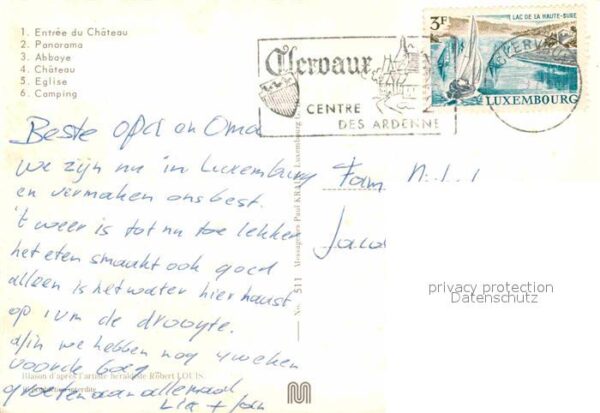 1. Entrée du Château
2. Panorama
3. Abbaye
4. Château
5. Eglise
6. Camping
Clervaux
CENTRE
DES ARDENNE
3F
LAC DE LA HAUTE-SURE
LUXEMBOURG
Beste opa en Oma
we zijn nu in Luxemburg
en vermaken ons best.
't weer is tot nu toe lekker
het eten smaakt ook goed
alleen is het water hier haast
op i.v.m de droogte.
we hebben nog 4 weken
voor de boeg
groeten aan allemaal
Fam
No. 511
Messageries Paul KRAUS, Luxembourg
Blason d'après l'artiste héraldiste Robert LOUIS.
interdite
privacy protection
Datenschutz